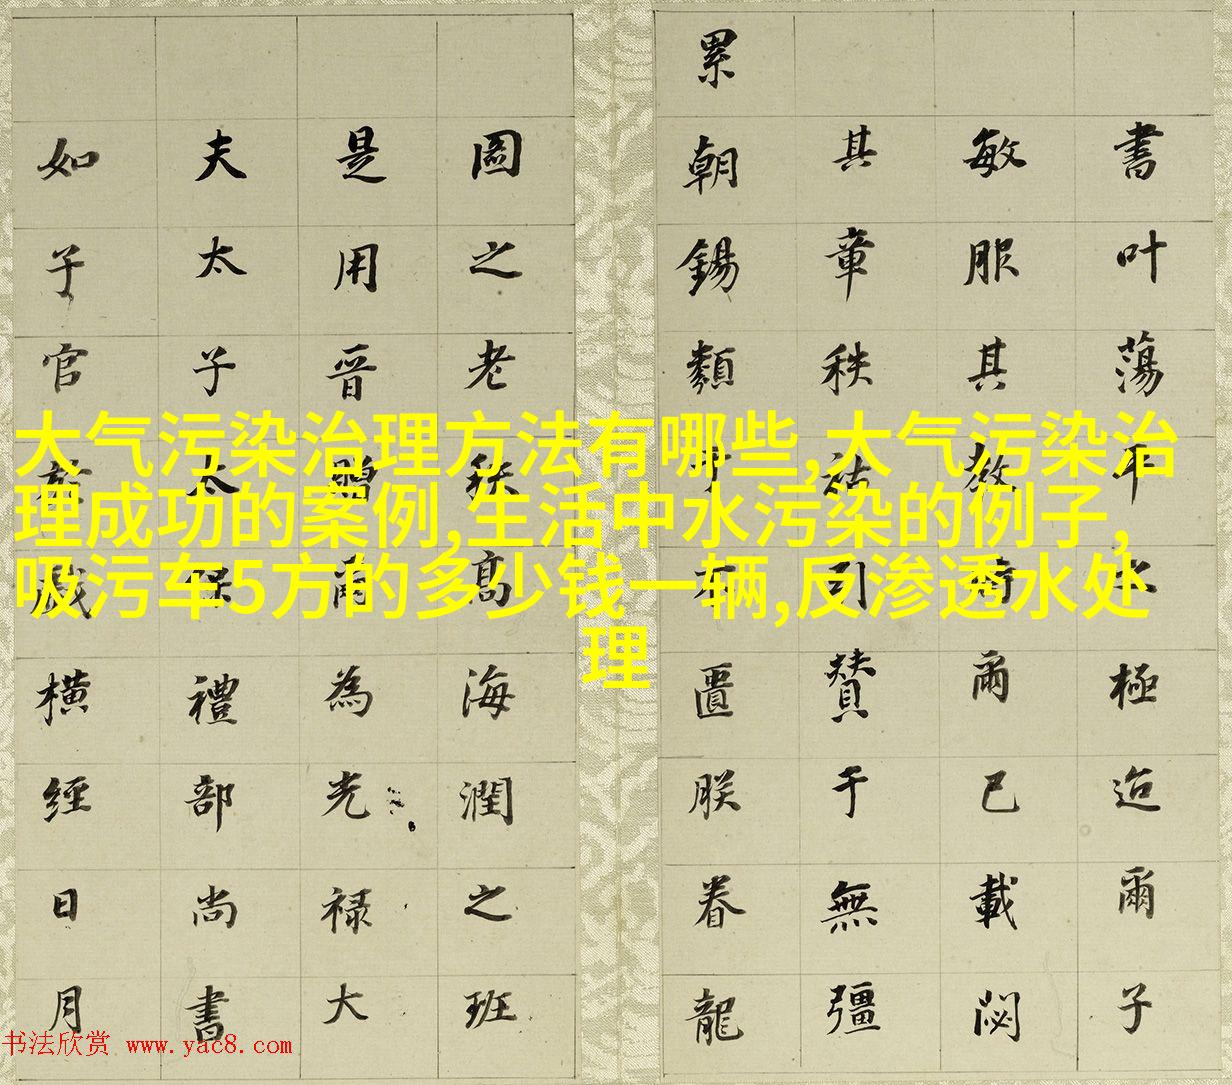 書叶蕩平水極迨爾子
敏服其教爾已載閟
其章秩祜引贊于無疆
累朝錫類予不匱朕眷龍
圖之老秩高海潤之班
是用晉爾為光祿大
夫太子太保禮部尚書
如子官於戲橫經日月
大气污染治理方法有哪些,大气污染治
理成功的案例,生活中水污染的例子,
吸污车5方的多少钱一辆,反渗透水处
理
书法欣赏 www.yac8.com